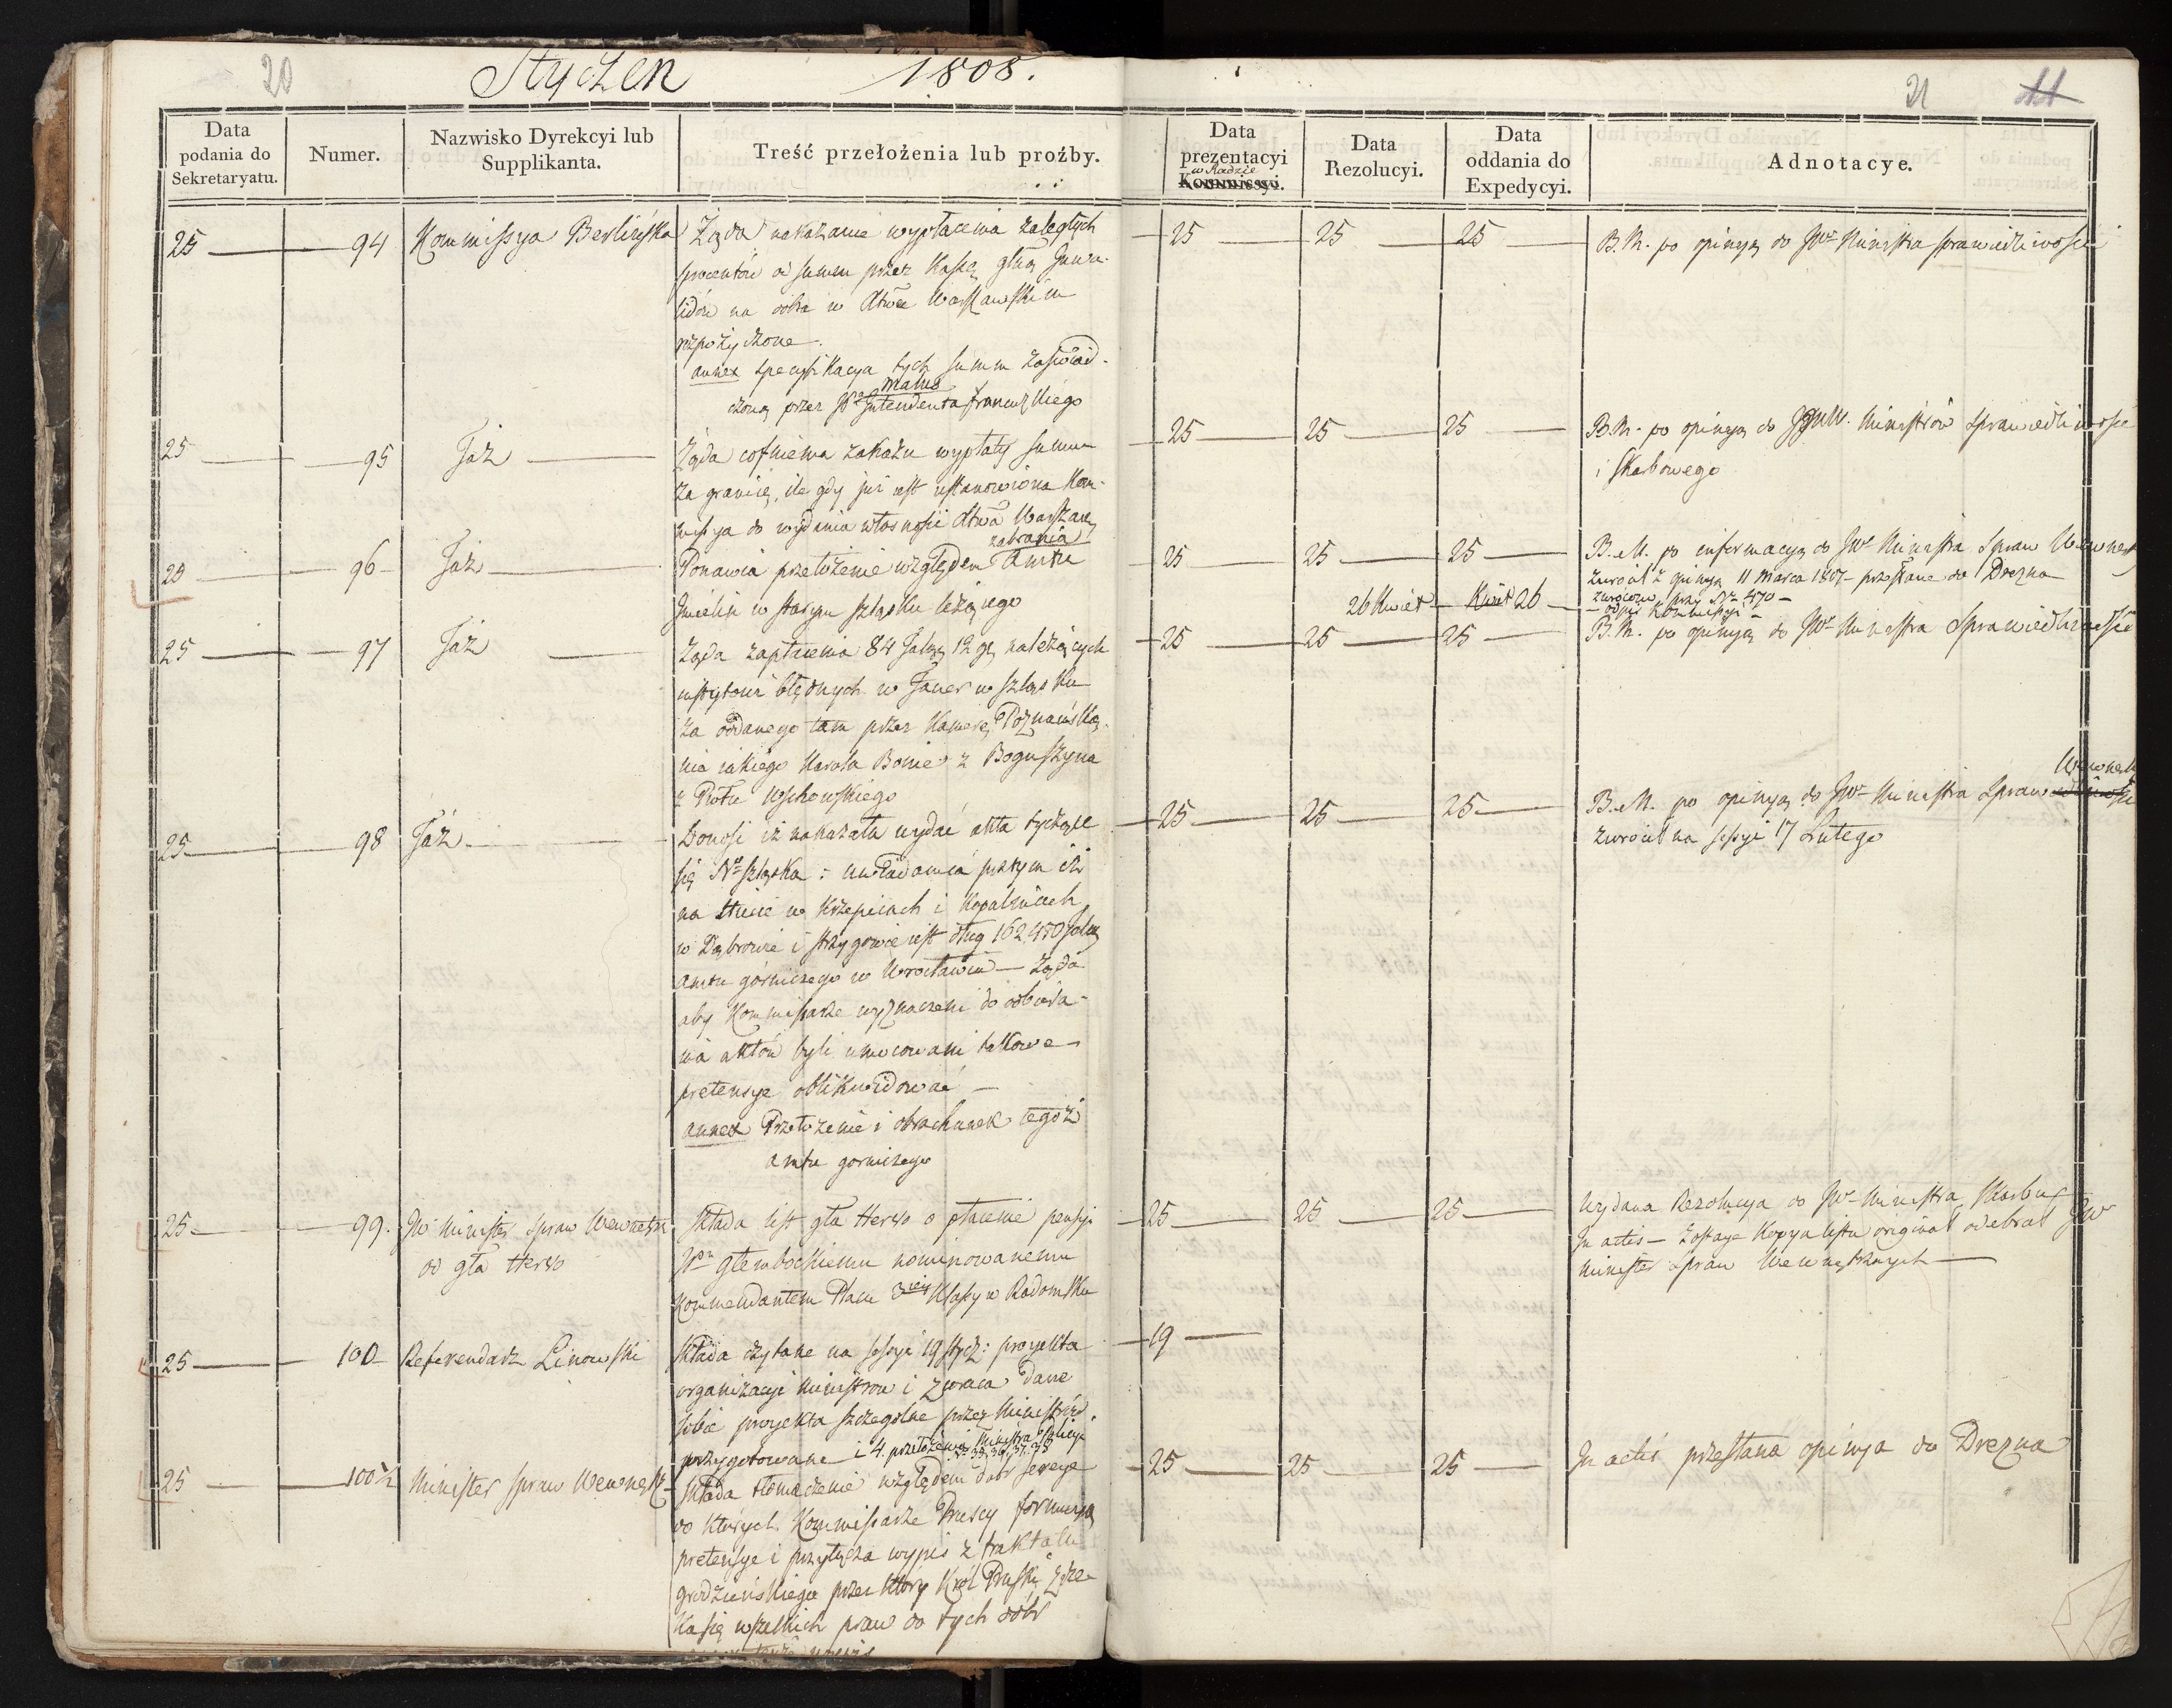 20
Styczeń 1808.
21
Data podania do Sekretaryatu.
Numer.
Nazwisko Dyrekcyi lub Supplikanta.
Treść przełożenia lub proźby.
Data prezentacyi w Radzie Kommissyi.
Data Rezolucyi.
Data oddania do Expedycyi.
Adnotacye.
25 94 Kommissya Berlińska
Żąda nakazanie wypłacenia zaległych
procentów od summ przez Kassę głną Inwa-
lidów na dobra w Xtwie Warszawskim
rozpożyczone.
annex Specyfikacya tych summ zaświad-
czoną przez JP. Malus Intendenta francuzkiego
25 25 25 B.M. po opinyą do JW Ministra sprawiedliwości
25 95 Taż
Żąda cofnienia zakazu wypłaty summ
za granicę, ile gdy już jest ustanowiona Kom-
missya do wydania własności Xtwa Warszaw
25 25 25 B.M. po opinyą do JJWW. Ministrów Sprawiedliwości
i Skarbowego
25 96 Taż
Ponawia przełożenie względem zabrania Amtu
Imielin w starym szląsku leżącego
25 25 25 B.M. po informacyą do JW Ministra Spraw Wewnęt
zwrócił z opinyą 11 Marca 1807 - przesłane do Drezna
26 Kwiet - Kwiet 26 - zwrócono przy Nr 470 -
- odpis Kommissyi -
25 97 Taż
Żąda zapłacenia 84 Talar 12 gr należących
instytowi błędnych w Jauer w szląsku
za oddanego tam przez Kamerę Poznańską
niejakiego Karola Bonie z Boguszyna
z Ptu Wschowskiego
25 25 25 B.M. po opinyą do JW Ministra Sprawiedliwości
25 98 Taż
Donosi iż nakazała wydać akta tyczące
się No szląska : uwiadamia przytym iż
na Hucie w Krzepicach i Kopalniach
w Dąbrowie i strzygowie jest dług 162,450 talar
amtu górniczego w Wrocławiu — Żąda
aby Kommissarze wyznaczeni do odbiera-
nia aktów byli umocowani takowe
pretensye oblikwidować —
annex Przełożenie i obrachunek tegoż
amtu gorniczego
25 25 25 B.M. po opinyą do JW Ministra Spraw Wewnęt
zwrócił na sessyi 17 Lutego
25 99. JW Minister Spraw Wewnętrz
od gła Herso
Składa list gła Herso o płacenie pensyi
JPn Głembockiemu nominowanemu
kommendantem Placu 3ciey Klassy w Radomsku
25 25 25 Wydana Rezolucya do JW Ministra Skarbu
In actis — Zostaje Kopya listu originał odebrał JW
Minister Spraw Wewnętrznych —
25 100 Referendarz Linowski
Składa czytane na sessyi 19 stycz: projekta
organizacyi Ministrow i zwraca dane
sobie projekta szczególne przez Ministrów
przygotowane i 4. przełożenia Ministra Policyi
N 35, 36, 37, 38
19
25 100 1/2 Minister Spraw Wewnęt
Składa tłomaczenie względem dobr Serreye
do których Kommissarze Pruscy formują
pretensye i przyłącza wypis z traktatu
grodzieńskiego przez który Król Pruski zrze-
ka się wszelkich praw do tych dóbr
25 25 25 In actis przesłana opinya do Drezna